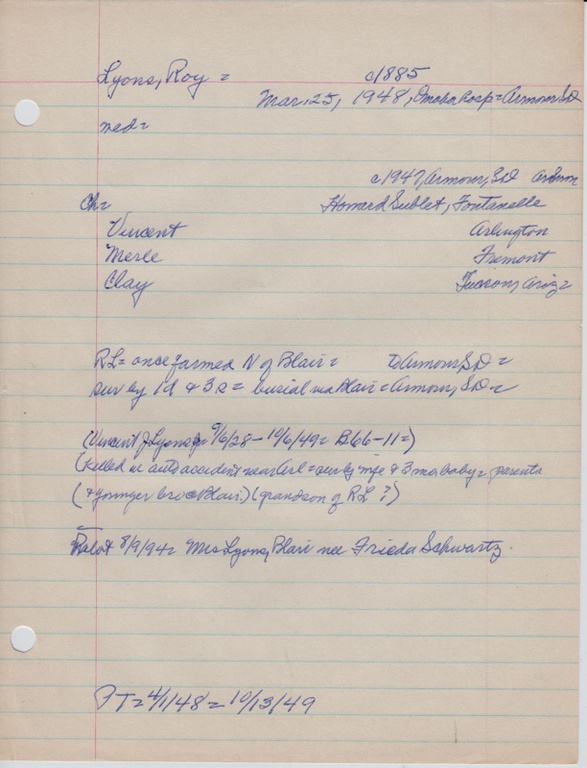 Lyons, Roy = c1885
Mar. 25, 1948, Omaha Hosp = Armour SD
med =
c1947, Armour, SD
Ch = Howard Sublet, Fontanelle
Vincent Arlington
Merle Fremont
Clay Tucson, Ariz =
RL = once farmed N of Blair = to Armour, SD =
sur by 1d & 3s = burial via Blair = Armour, SD =
(Vincent J Lyons jr 9/6/28 - 10/6/49 = B66-11 =)
(killed in auto accident near Arl = sur by wife & 3 mo baby = parents
(& younger bro = Blair) (grandson of RL ?)
8/9/94 = Mrs Lyons, Blair nee Frieda Schwartz.
PT = 4/1/48 = 10/13/49